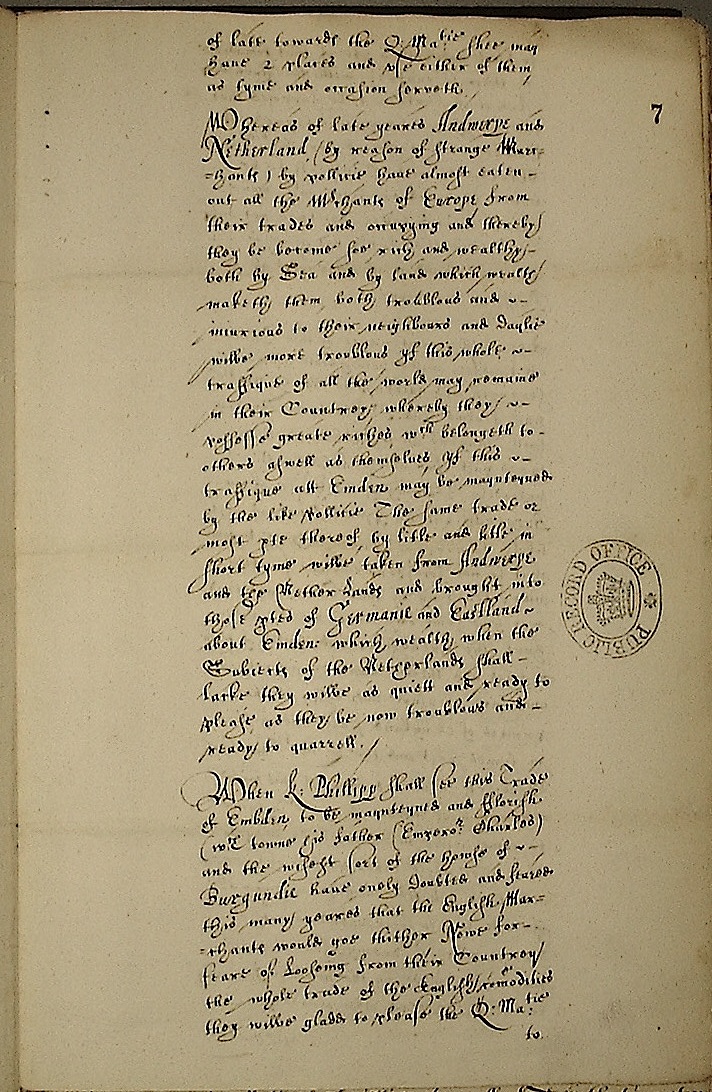 of late towards the Q: Matie shee may
have 2 places and use either of them
as tyme and occasion serveth.
7
Whereas of late yeares Andwerpe and
Netherland, (by reason of strange Marr=
=chants) by pollicie have almost eaten
out all the Mrchants of Europe from
their trades and occupying and thereby
they be become soe rich and wealthy
both by Sea and by land which wealth
maketh them both troublous and
iniurious to their neighbours and daylie
wilbe more troublous yf this whole
traffique of all the world may remaine
in their Countrey, whereby they
possesse greate riches wch belongeth to
others aswell as themselves yf this
traffique att Emden may be maynteyned
by the like pollicie The same trade or
most pte thereof by litle and litle in
short tyme wilbe taken from Andwerpe
and the Nether Lands and brought into
those ptes of Germanie and Eastland
about Emden: which wealth when the
Subiects of the Netherlands shall
lacke they wilbe as quiett and ready to
please as they be now troublous and
ready to quarrell.
When K: Phillipp shall see this Trade
of Embden to be maynteyned and fflorish
(wch towne his father (Emperor Charles)
and the wisest sort of the howse of
Burgundie have onely doubted and feared
this many yeares that the English Mar=
=chants would goe thither Nowe for
feare of Looseing from their Countrey
the whole trade of the English comodities
they wilbe gladd to please the Q: Matie
to
PUBLIC RECORD OFFICE